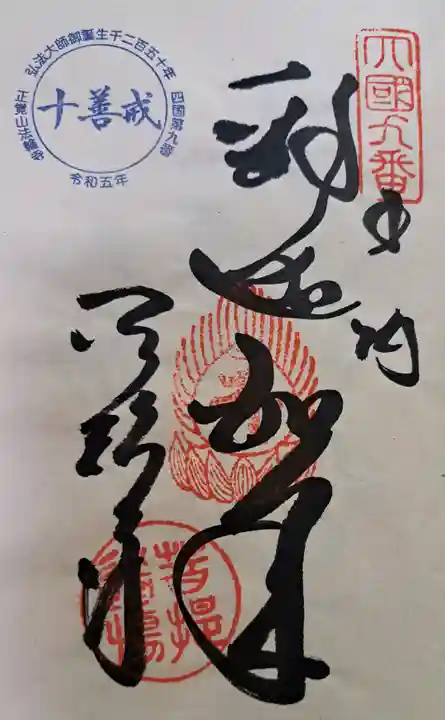 四國九番
奉納
釈迦如来
法輪寺
弘法大師御誕生千二百五十年
四国第九番
正覚山法輪寺
十善戒
令和五年